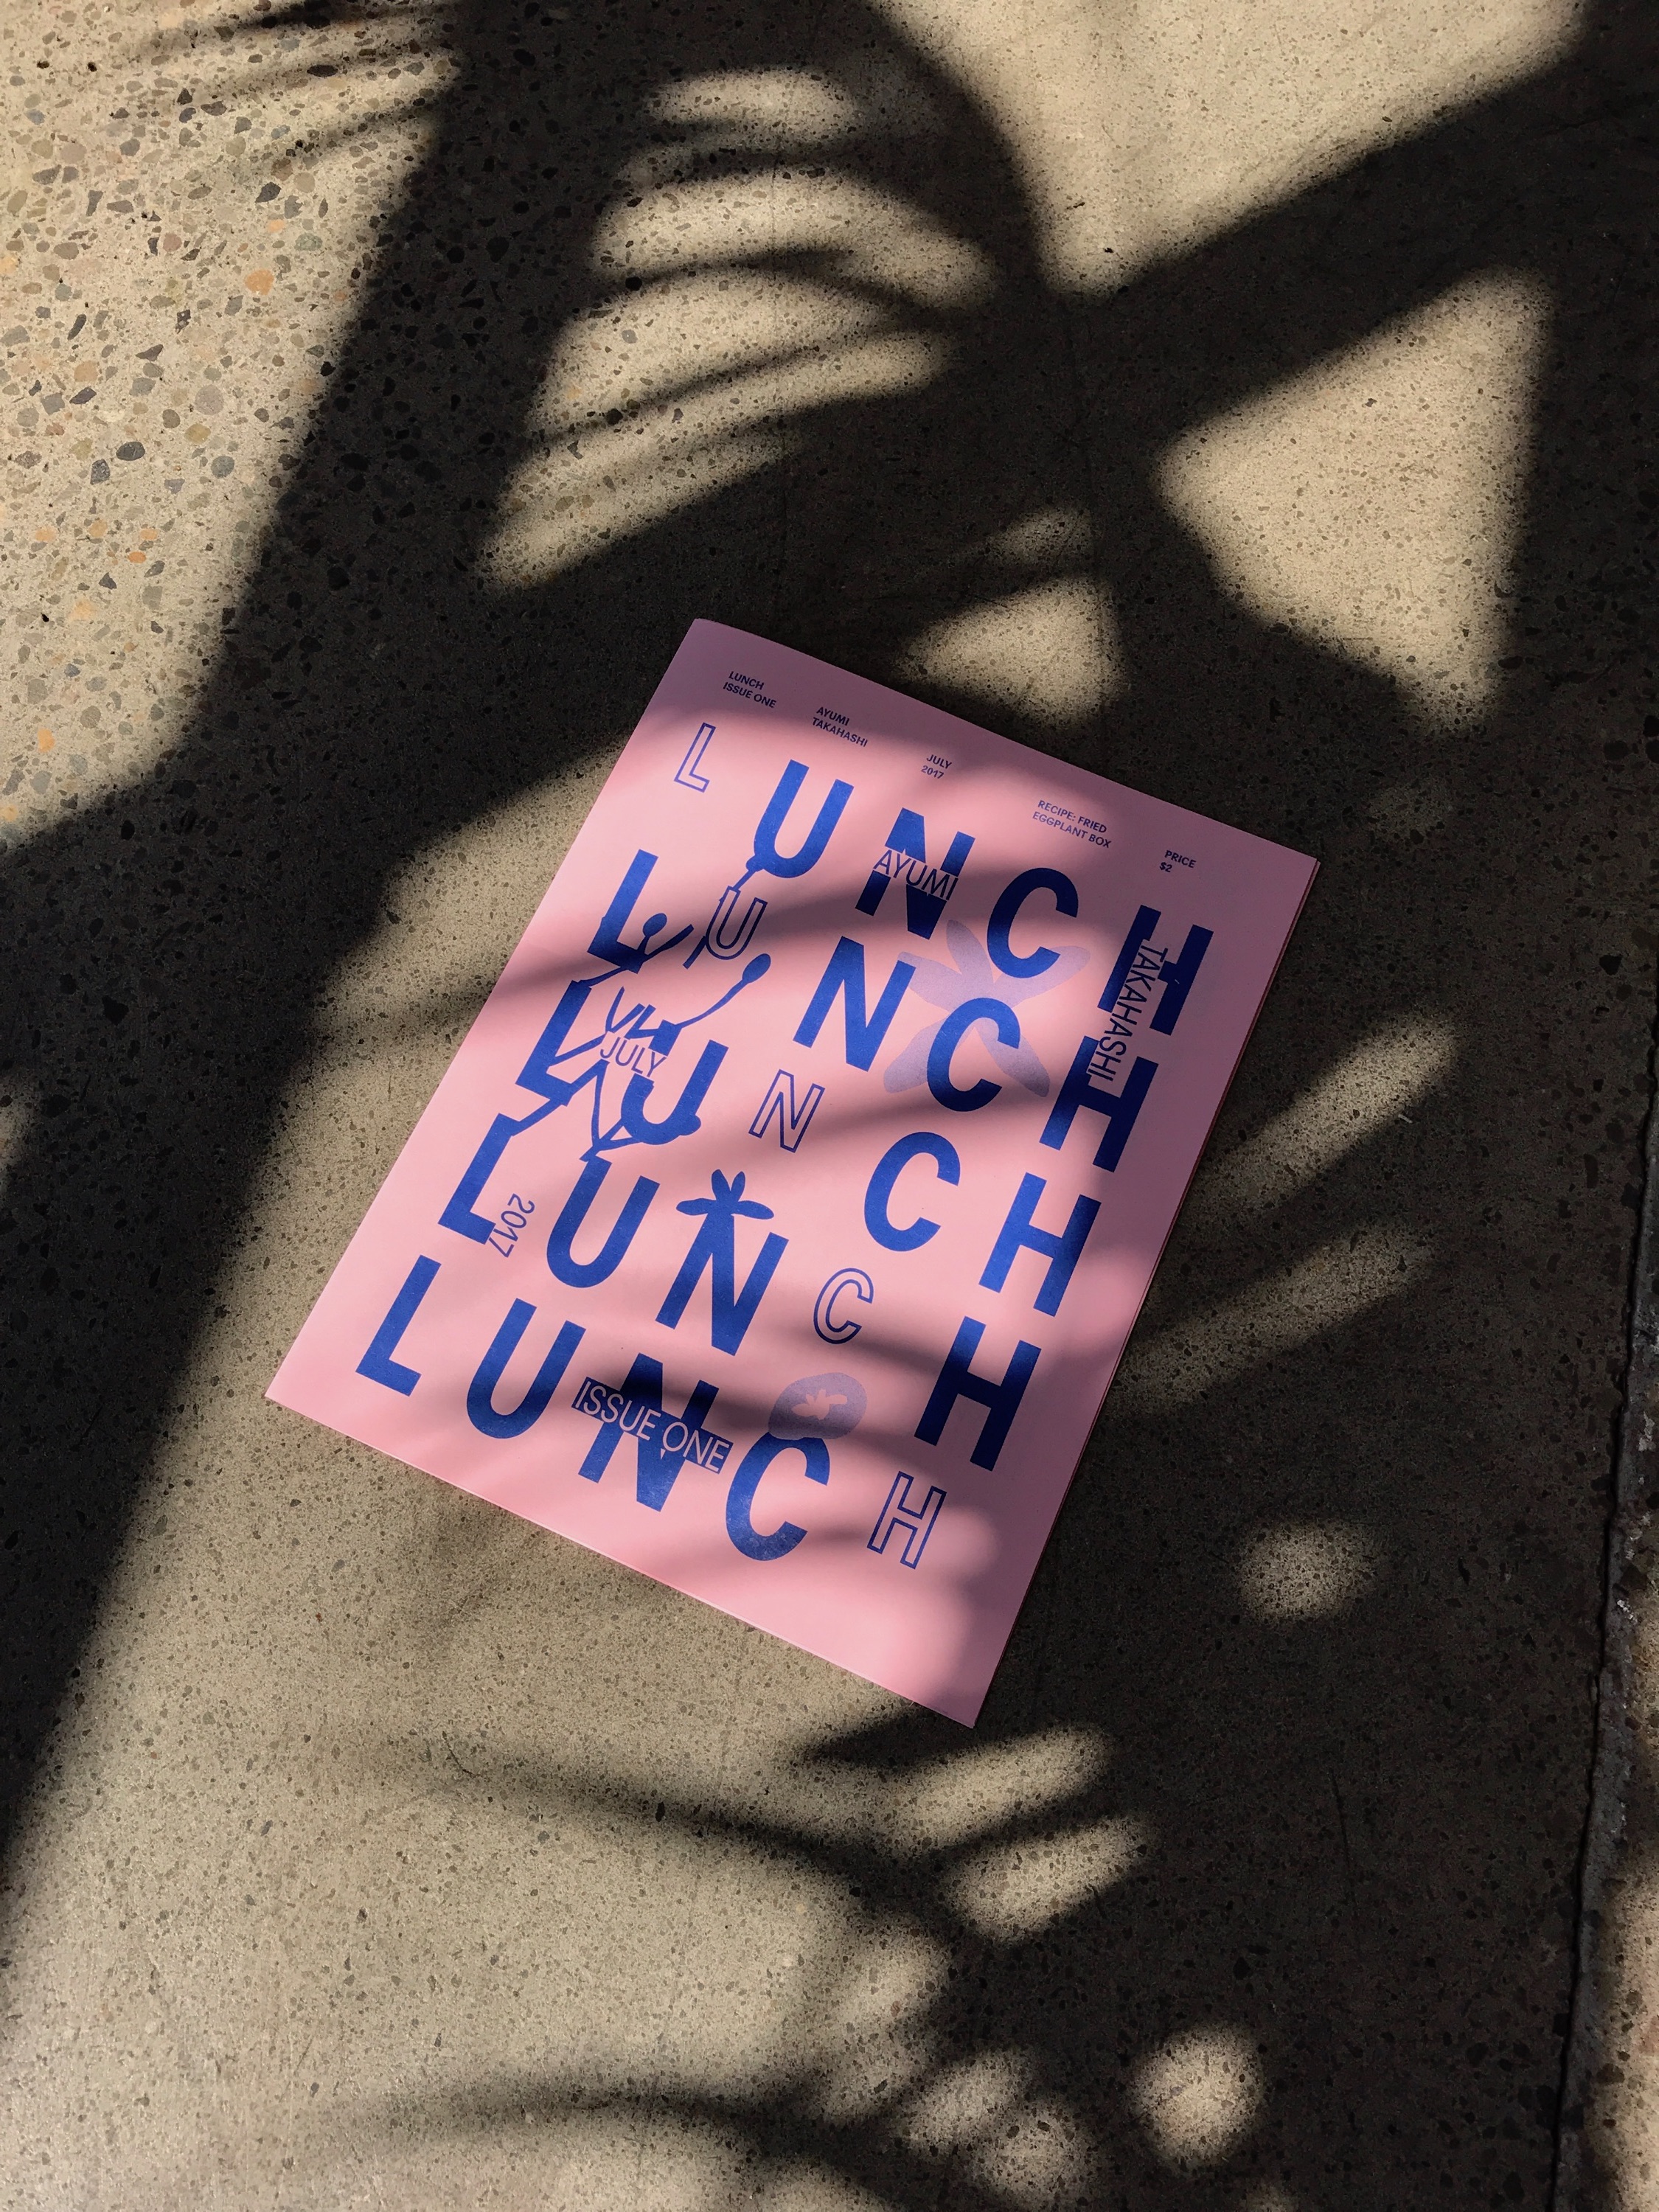 LUNCH
ISSUE ONE
AYUMI
TAKAHASHI
JULY
2017
RECIPE: FRIED
EGGPLANT BOX
PRICE
$2
LUNCH
AYUMI
TAKAHASHI
LUNCH
JULY
LUNCH
2017
LUNCH
ISSUE ONE
LUNCH